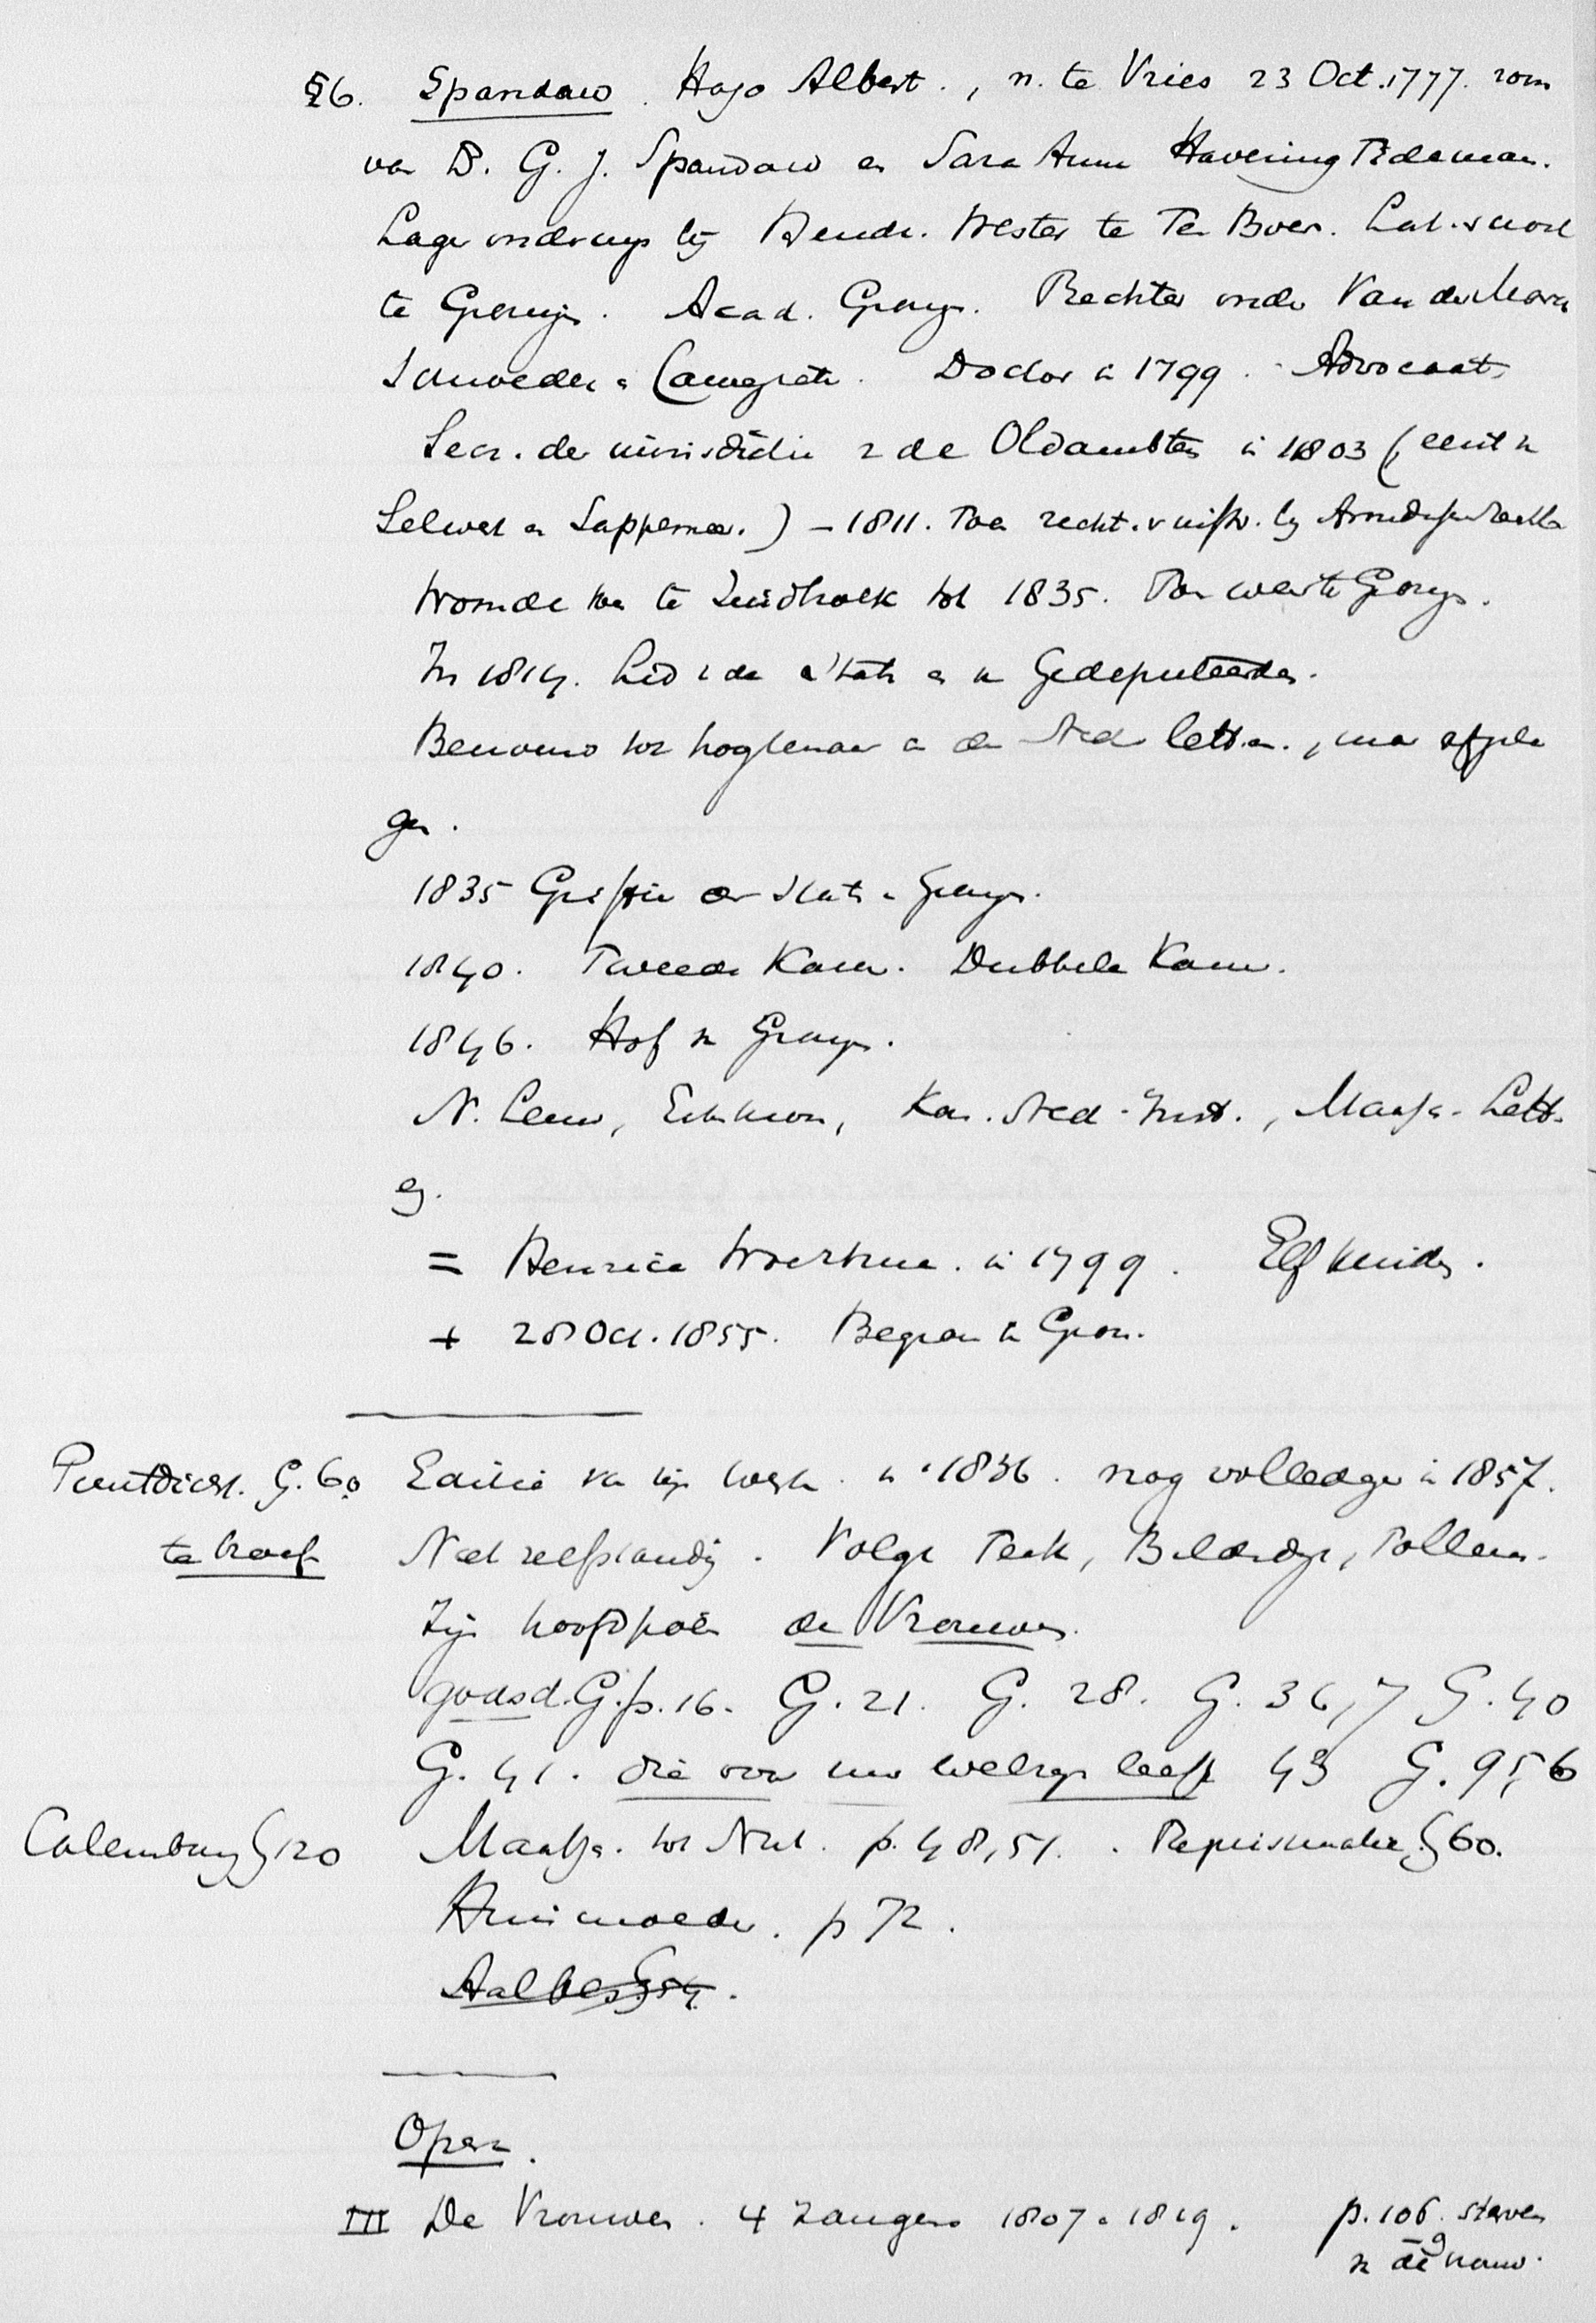 §6. Spandaw. Hajo Albert., n. te Vries 23 Oct. 1777. zoon
van D. G. J. Spandaw en Sara Anna Havering Tideman.
Lager onderwys bij Hendr. Wester te Ten Boer. Lat. school
te Groning. Acad. Grong. Rechten onder Van der Marck
Schroeder en Camegieter. Doctor in 1799. Advocaat,
Secr. der jurisdictie v de Oldambten in 1803 (eerst in
Selwerd en Sappemeer.) – 1811. Toen recht. v instr. bij Arrondissem Rechtb
Woonde toen te Zuidbroek tot 1835. Toen weer te Grong.
In 1814. Lid v de Staten en in Gedeputeerden.
Benoemd tot hoogleraar in de Ned letteren., maar afgesla
gen.
1835 Griffier der Staten v Grong.
1840. Tweede Kamer. Dubbele Kamer.
1846. Hof in Grong.
N. Leeuw, Eikekroon, Kon. Ned. Inst., Maatsch. Lett.
= Henrica Woerhuus. in 1799. Elf kinders.
+ 28 Oct. 1855. Begraven in Gron.
Puntdicht. G. 60
te braaf
Editie van zijn werken in 1836. nog vollediger in 1857.
Niet zelfstandig. Volgt Feith, Bilderdijk, Tollens.
Zijn hoofdpoëem de Vrouwen.
godsd. G. p. 16. G. 21. G. 28. G. 36,7 G. 40
G. 41. die voor hun welzyn leeft 43 G. 95,6
Calembourg G 120
Maatsch. tot Nut. p. 48, 51. Papiermaker G 60.
Huismoeder. p 72.
Opera.
III De Vrouwen. 4 zangen 1807 en 1819.
p. 106. sterven